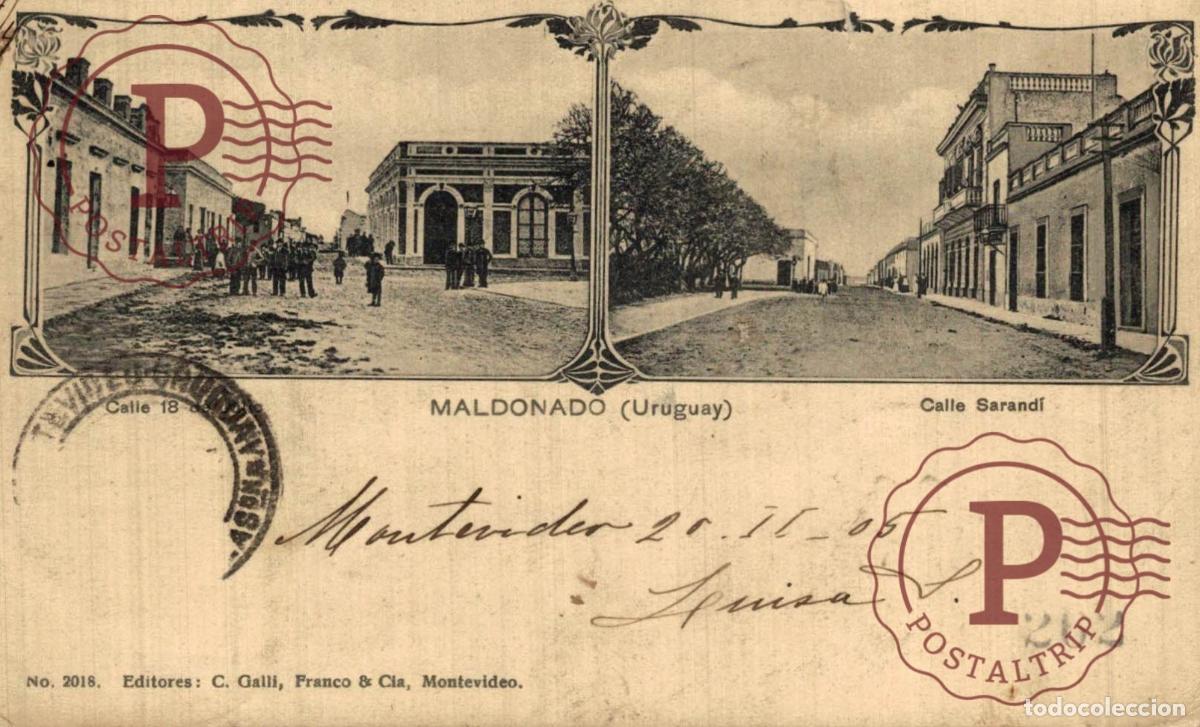 P
POSTALTRIP
Calle 18 de
MALDONADO (Uruguay)
Calle Sarandí
Montevideo 20. II - 05
Luisa S.
P
POSTALTRIP
No. 2018. Editores: C. Galli, Franco & Cia, Montevideo.
todocoleccion